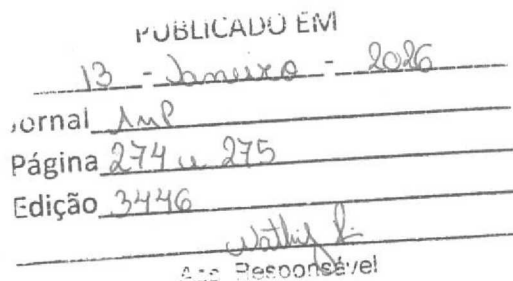 PUBLICADO EM
13 - Janeiro - 2026
Jornal AMP
Página 274 e 275
Edição 3446
Ass Responsável